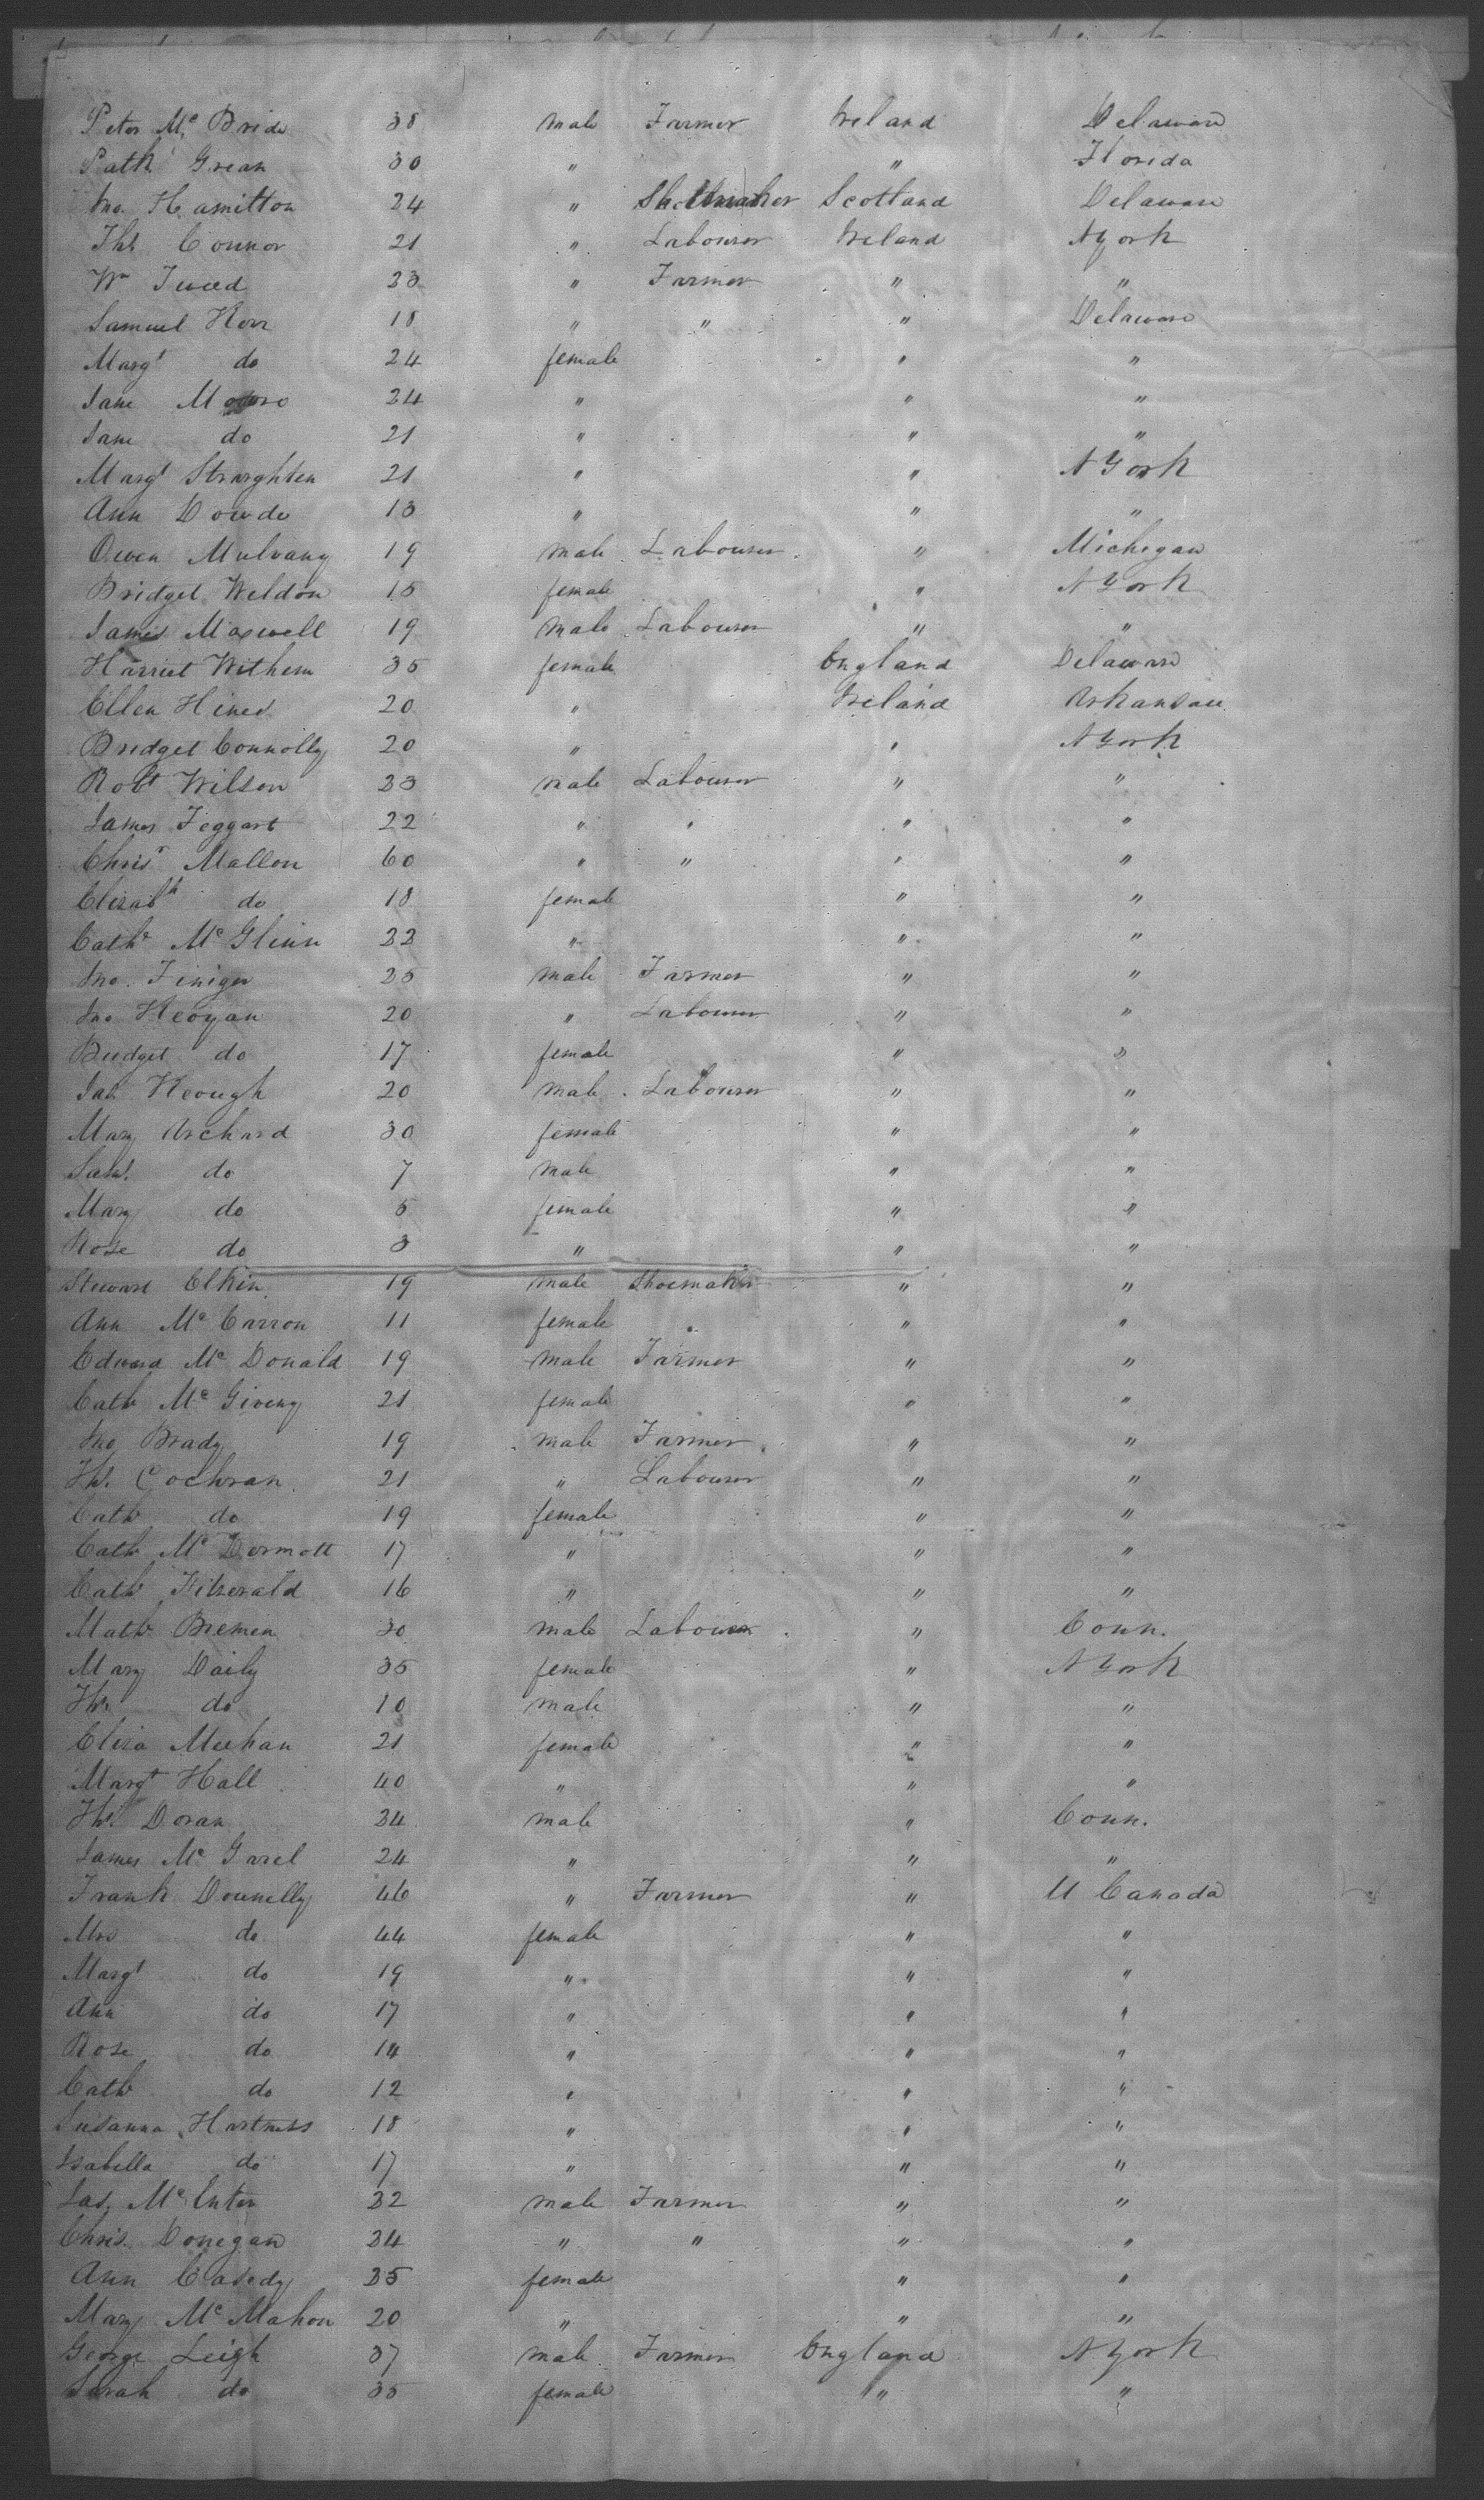 Peter Mc Bride 38 male Farmer Ireland Delaware
Patk Grean 30 " " " Florida
Jno. Hamilton 24 " Shoemaker Scotland Delaware
Ths Connor 21 " Labourer Ireland N York
Wm Tweed 23 " Farmer " "
Samuel Kerr 18 " " " Delaware
Margt do 24 female " "
Jane Moore 24 " " "
Jane do 21 " " "
Margt Straghten 21 " " N York
Ann Dowde 13 " " "
Owen Mulvany 19 male Labourer " Michegan
Bridget Weldon 15 female " N York
James Maxwell 19 male Labourer " "
Harriet Withem 35 female England Delaware
Ellen Hines 20 " Ireland Arkansau
Bridget Connolly 20 " " N York
Robt Wilson 23 male Labourer " "
James Teggart 22 " " " "
Chrisr Mallon 60 " " " "
Elizabth do 18 female " "
Cathe Mc Glinn 22 " " "
Jno. Finigan 25 male Farmer " "
Jno Keoyan 20 " Labourer " "
Bridget do 17 female " "
Jas Keough 20 male Labourer " "
Mary Archard 30 female " "
Jas. do 7 male " "
Mary do 5 female " "
Rose do 3 " " "
Stewart Elkin 19 male Shoemaker " "
Ann Mc Carron 11 female " "
Edward Mc Donald 19 male Farmer " "
Cath Mc Giveny 21 female " "
Jno Brady 19 male Farmer " "
Ths. Cochran 21 " Labourer " "
Cath do 19 female " "
Cath Mc Dermott 17 " " "
Cath Fitzerald 16 " " "
Math Bremen 30 male Labourer " Conn.
Mary Daily 35 female " N York
Ths do 10 male " "
Eliza Meehan 21 female " "
Margt Hall 40 " " "
Ths. Doran 34 male " Conn.
James Mc Garel 24 " " "
Frank Donnelly 46 " Farmer " U Canada
Mrs do 44 female " "
Margt do 19 " " "
Ann do 17 " " "
Rose do 14 " " "
Cath do 12 " " "
Susanna Hartness 18 " " "
Isabella do 17 " " "
Jas. Mc Enter 32 male Farmer " "
Chris. Donegan 34 " " " "
Ann Casedy 35 female " "
Mary Mc Mahon 20 " " "
George Leigh 37 male Farmer England N York
Sarah do 35 female " "